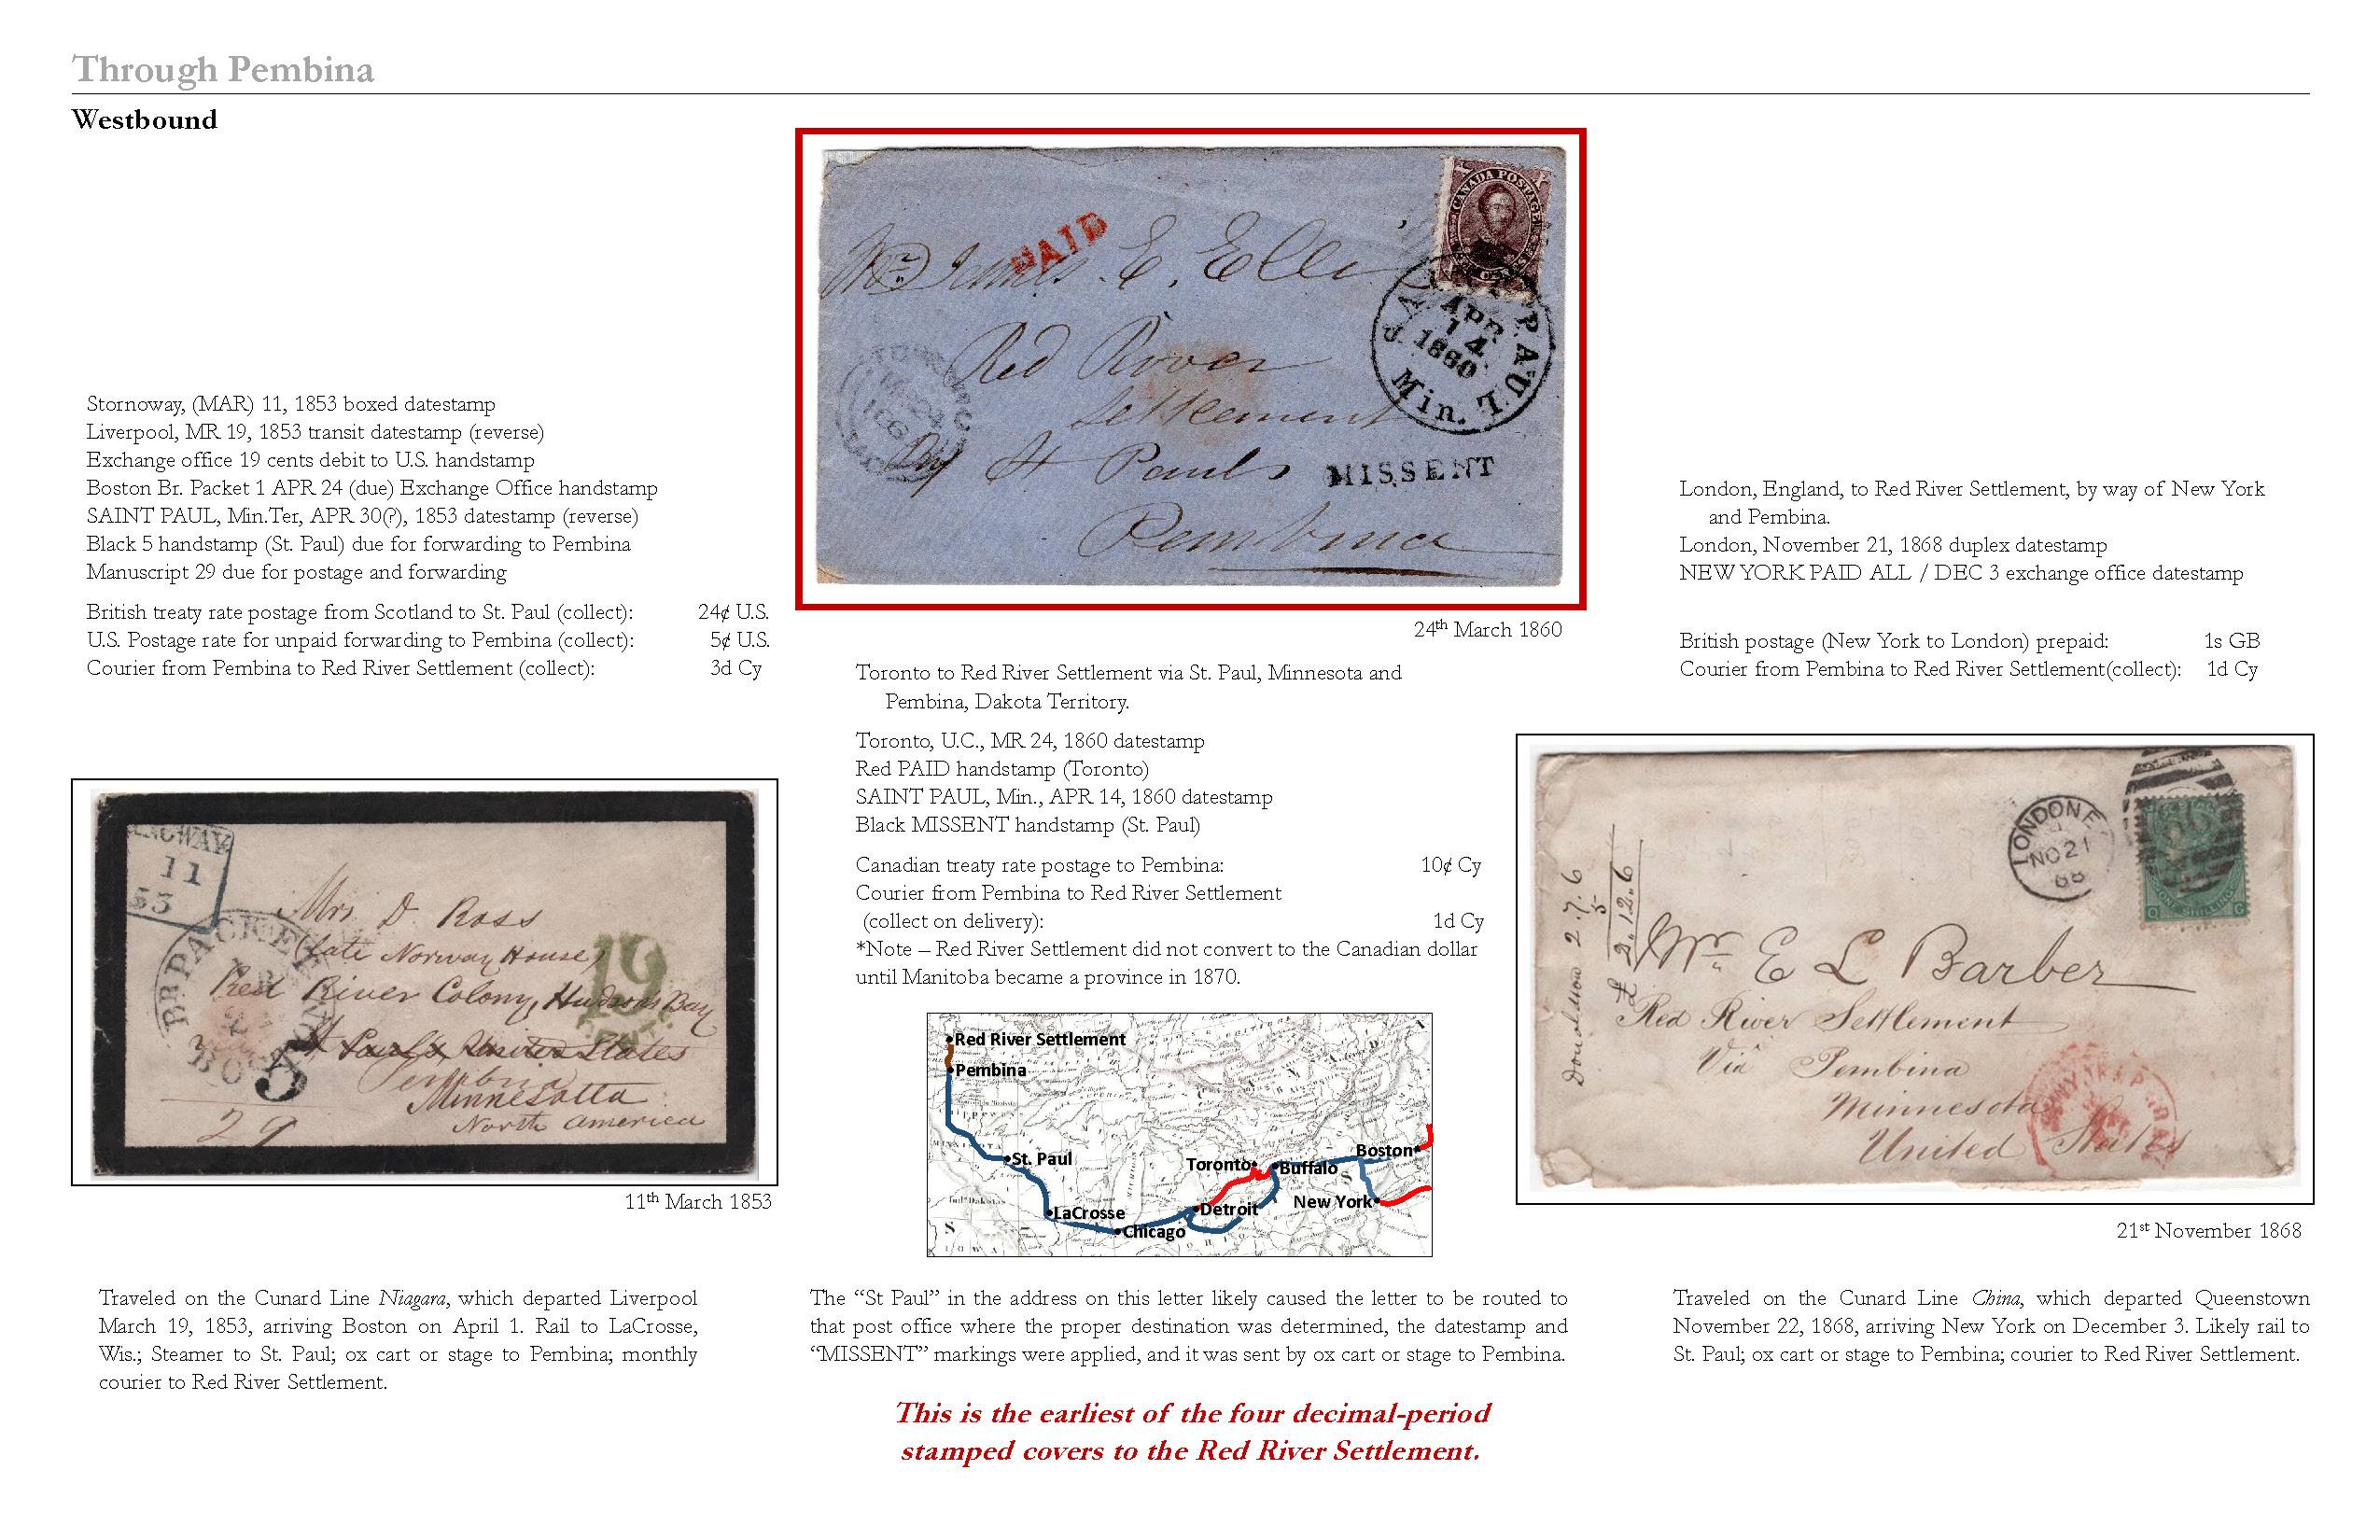 Through Pembina
Westbound
Stornoway, (MAR) 11, 1853 boxed datestamp
Liverpool, MR 19, 1853 transit datestamp (reverse)
Exchange office 19 cents debit to U.S. handstamp
Boston Br. Packet 1 APR 24 (due) Exchange Office handstamp
SAINT PAUL, Min.Ter, APR 30(?), 1853 datestamp (reverse)
Black 5 handstamp (St. Paul) due for forwarding to Pembina
Manuscript 29 due for postage and forwarding
British treaty rate postage from Scotland to St. Paul (collect): 24¢ U.S.
U.S. Postage rate for unpaid forwarding to Pembina (collect): 5¢ U.S.
Courier from Pembina to Red River Settlement (collect): 3d Cy
11
53
Mrs D. Ross
(late Norway House)
Red River Colony, Hudsons Bay
St Pauls United States
Pembina
Minnesotta
North America
BR PACKET
BOSTON
19
5
29
11th March 1853
Traveled on the Cunard Line Niagara, which departed Liverpool
March 19, 1853, arriving Boston on April 1. Rail to LaCrosse,
Wis.; Steamer to St. Paul; ox cart or stage to Pembina; monthly
courier to Red River Settlement.
CANADA POSTAGE
PAID
James E. Elli
Red River
Settlement
By St Pauls
Pembina
MISSENT
PAUL
APR
14
1860
Min. T.
24th March 1860
Toronto to Red River Settlement via St. Paul, Minnesota and
Pembina, Dakota Territory.
Toronto, U.C., MR 24, 1860 datestamp
Red PAID handstamp (Toronto)
SAINT PAUL, Min., APR 14, 1860 datestamp
Black MISSENT handstamp (St. Paul)
Canadian treaty rate postage to Pembina: 10¢ Cy
Courier from Pembina to Red River Settlement
(collect on delivery): 1d Cy
*Note – Red River Settlement did not convert to the Canadian dollar
until Manitoba became a province in 1870.
Red River Settlement
Pembina
St. Paul
LaCrosse
Chicago
Detroit
Toronto
Buffalo
Boston
New York
The “St Paul” in the address on this letter likely caused the letter to be routed to
that post office where the proper destination was determined, the datestamp and
“MISSENT” markings were applied, and it was sent by ox cart or stage to Pembina.
This is the earliest of the four decimal-period
stamped covers to the Red River Settlement.
London, England, to Red River Settlement, by way of New York
and Pembina.
London, November 21, 1868 duplex datestamp
NEW YORK PAID ALL / DEC 3 exchange office datestamp
British postage (New York to London) prepaid: 1s GB
Courier from Pembina to Red River Settlement(collect): 1d Cy
LONDON E
NO 21
68
ONE SHILLING
Donaldson 2.7.6
5
£ 2.12.6
Mr E L Barber
Red River Settlement
Via Pembina
Minnesota
United States
21st November 1868
Traveled on the Cunard Line China, which departed Queenstown
November 22, 1868, arriving New York on December 3. Likely rail to
St. Paul; ox cart or stage to Pembina; courier to Red River Settlement.